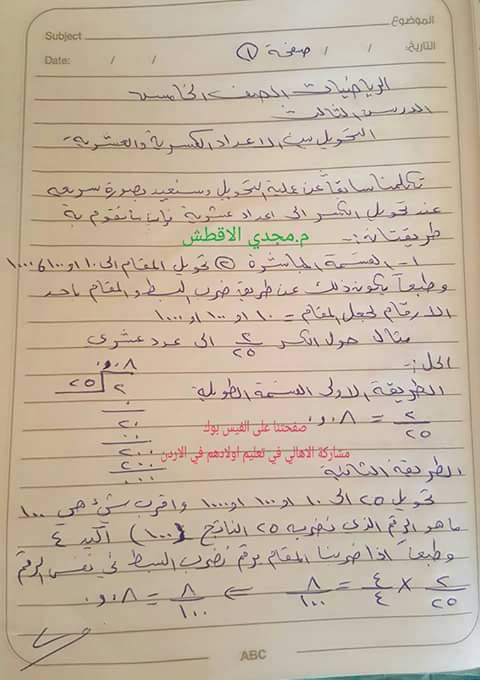 الموضوع
Subject
التاريخ: / /
Date: / /
صفحة ١
الرياضيات الصف الخامس
الدرس الثالث
التحويل بين الاعداد الكسرية والعشرية
تكلمنا سابقاً عن عملية التحويل وسنعيد بصورة سريعه
عند تحويل الكسر الى اعداد عشرية نقوم به
م.مجدي الاقطش
طريقتان:-
١- القسمة المباشرة ٢ تحويل المقام الى ١٠ او ١٠٠ او ١٠٠٠
وطبعاً يكون ذلك عن طريقة ضرب البسط والمقام باحد
الارقام لجعل المقام = ١٠ او ١٠٠ او ١٠٠٠
مثال حول الكسر ٢/٢٥ الى عدد عشري
الحل:-
٠,٠٨
الطريقة الاولى القسمة الطويلة
٢ ٢٥
٢/٢٥ = ٠,٠٨
٢٠
٠٠
٢٠٠
٢٠٠
٠٠٠
صفحتنا على الفيس بوك
مشاركة الاهالي في تعليم اولادهم في الاردن
الطريقة الثانية
تحويل ٢٥ الى ١٠ او ١٠٠ او ١٠٠٠ واقرب شيء هي ١٠٠
ما هو الرقم الذي نضربه ٢٥ الناتج (١٠٠) أكيد ٤
وطبعاً اذا ضربنا المقام برقم نضرب البسط في نفس الرقم
٢/٢٥ × ٤/٤ = ٨/١٠٠ ⇐ ٨/١٠٠ = ٠,٠٨
ABC